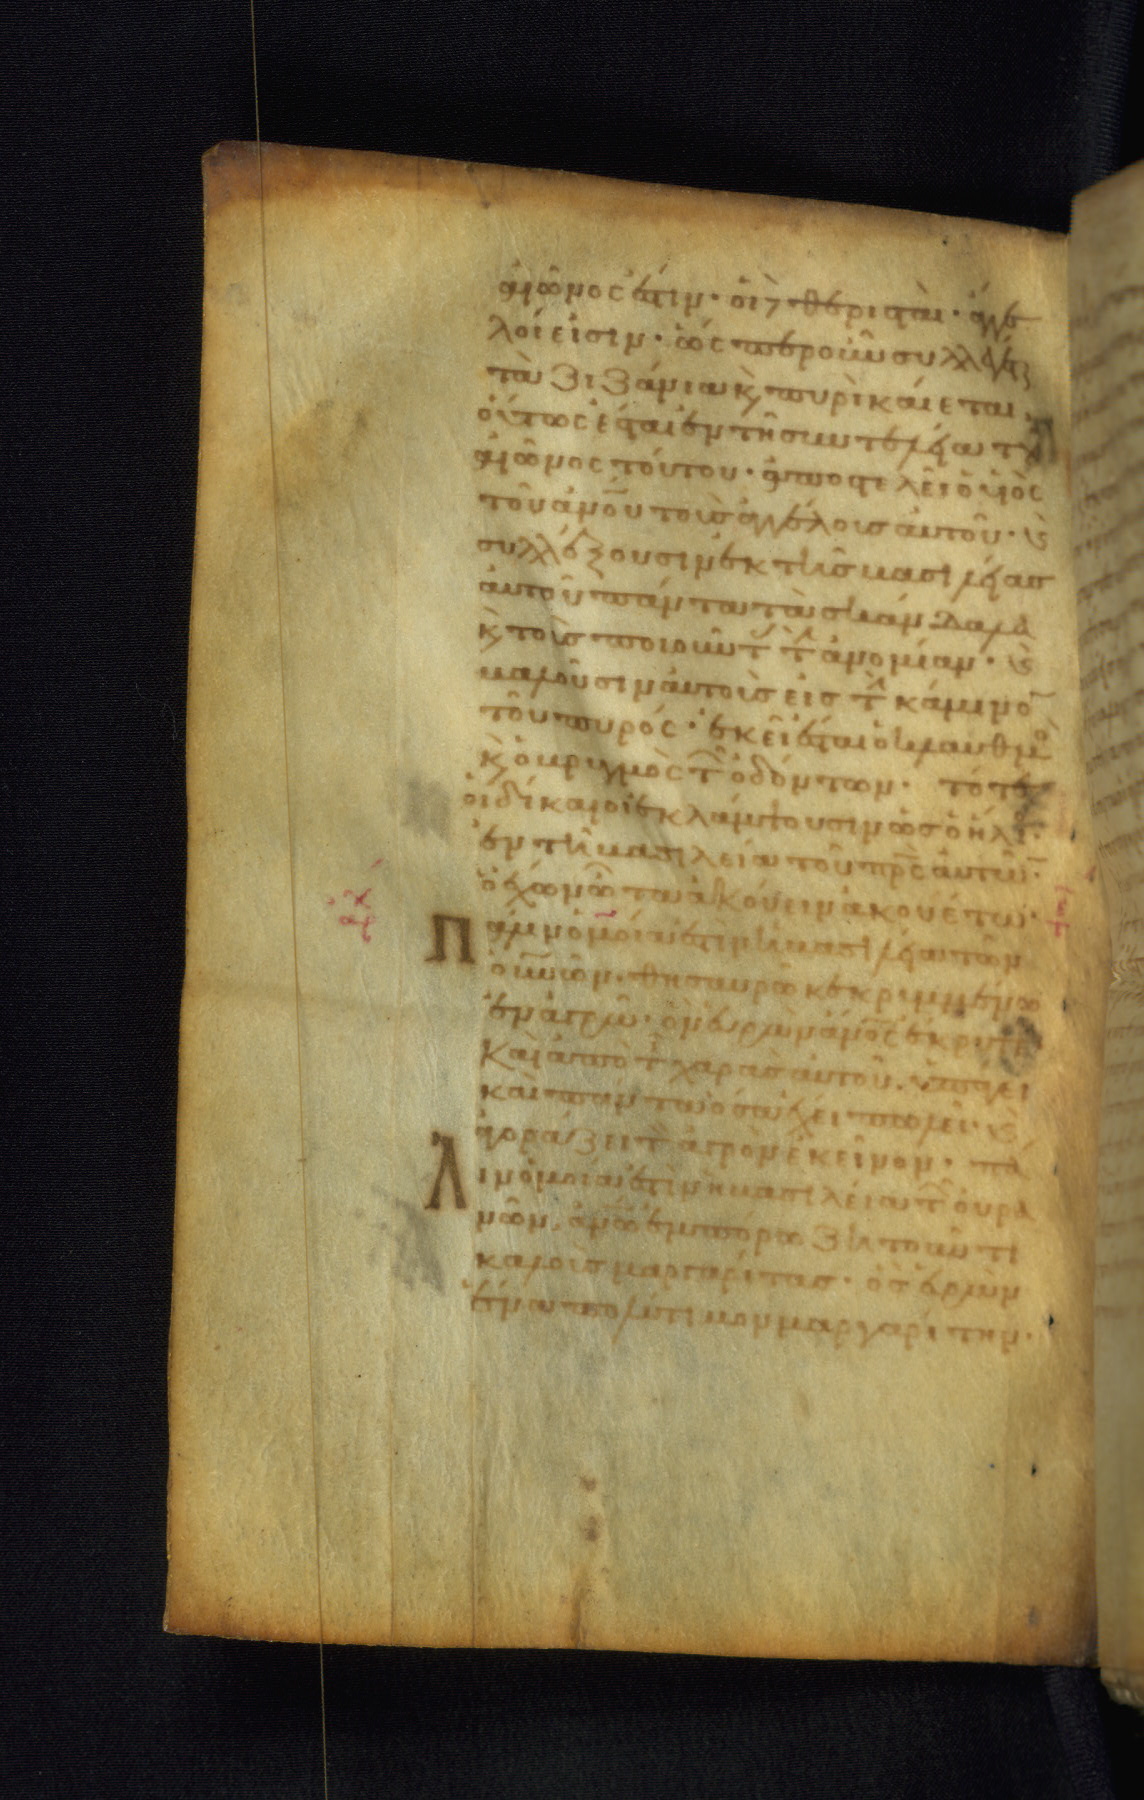 αἰῶνός ἐστιν· οἱ δὲ θερισταὶ ἄγγε
λοί εἰσιν· ὥσπερ οὖν συλλέγεται
τὰ ζιζάνια κ πυρὶ καίεται·
οὕτως ἔσται ἐν τῆ συντελεία τοῦ
αἰῶνος τούτου· ἀποστελεῖ ὁ υἱὸς
τοῦ ἀνου τοὺς ἀγγέλους αὐτοῦ· κ
συλλέξουσιν ἐκ τῆς βασιλείας
αὐτοῦ πάντα τὰ σκάνδαλα
κ τοὺς ποιοῦντ τὴν ἀνομίαν· κ
βαλοῦσιν αὐτοὺς εἰς τὴν κάμινον
τοῦ πυρός· ἐκεῖ ἔσται ὁ κλαυθμὸ
κ ὁ βρυγμὸς τῶν ὀδόντων· τότε
οἱ δίκαιοι ἐκλάμψουσιν ὡς ὁ ἥλι
ἐν τῆ βασιλεία τοῦ πρς αὐτῶν·
ὁ ἔχων ὦτα ἀκούειν ἀκουέτω·
Πάλιν ὁμοία ἐστὶν ἡ βασιλεία τῶν
οὐνῶν· θησαυρῶ κεκρυμμένω
ἐν ἀγρῶ· ὃν εὑρὼν ἀνος ἔκρυψε
καὶ ἀπὸ τῆς χαρᾶς αὐτοῦ ὑπάγει
καὶ πάντα ὅσα ἔχει πωλεῖ· κ
ἀγοράζει τὸν ἀγρὸν ἐκεῖνον· πά
Λιν ὁμοία ἐστὶν ἡ βασιλεία τῶν οὐρα
νῶν ἀνω ἐμπόρω ζητοῦντι
καλοὺς μαργαρίτας· ὃς εὑρὼν
ἕνα πολύτιμον μαργαρίτην·